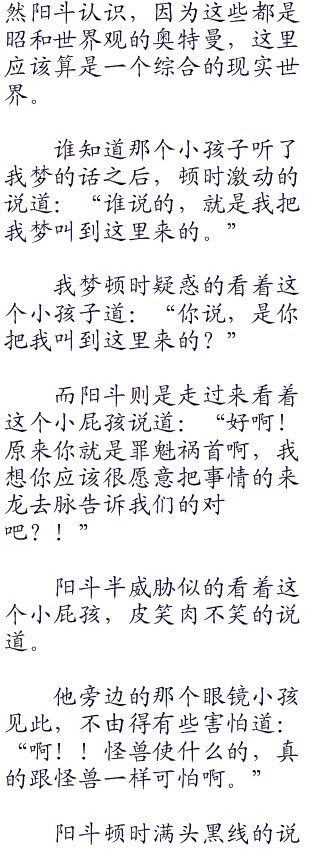 然阳斗认识，因为这些都是
昭和世界观的奥特曼，这里
应该算是一个综合的现实世
界。
谁知道那个小孩子听了
我梦的话之后，顿时激动的
说道：“谁说的，就是我把
我梦叫到这里来的。”
我梦顿时疑惑的看着这
个小孩子道：“你说，是你
把我叫到这里来的？”
而阳斗则是走过来看着
这个小屁孩说道：“好啊！
原来你就是罪魁祸首啊，我
想你应该很愿意把事情的来
龙去脉告诉我们的对
吧？！”
阳斗半威胁似的看着这
个小屁孩，皮笑肉不笑的说
道。
他旁边的那个眼镜小孩
见此，不由得有些害怕道：
“啊！！怪兽使什么的，真
的跟怪兽一样可怕啊。”
阳斗顿时满头黑线的说